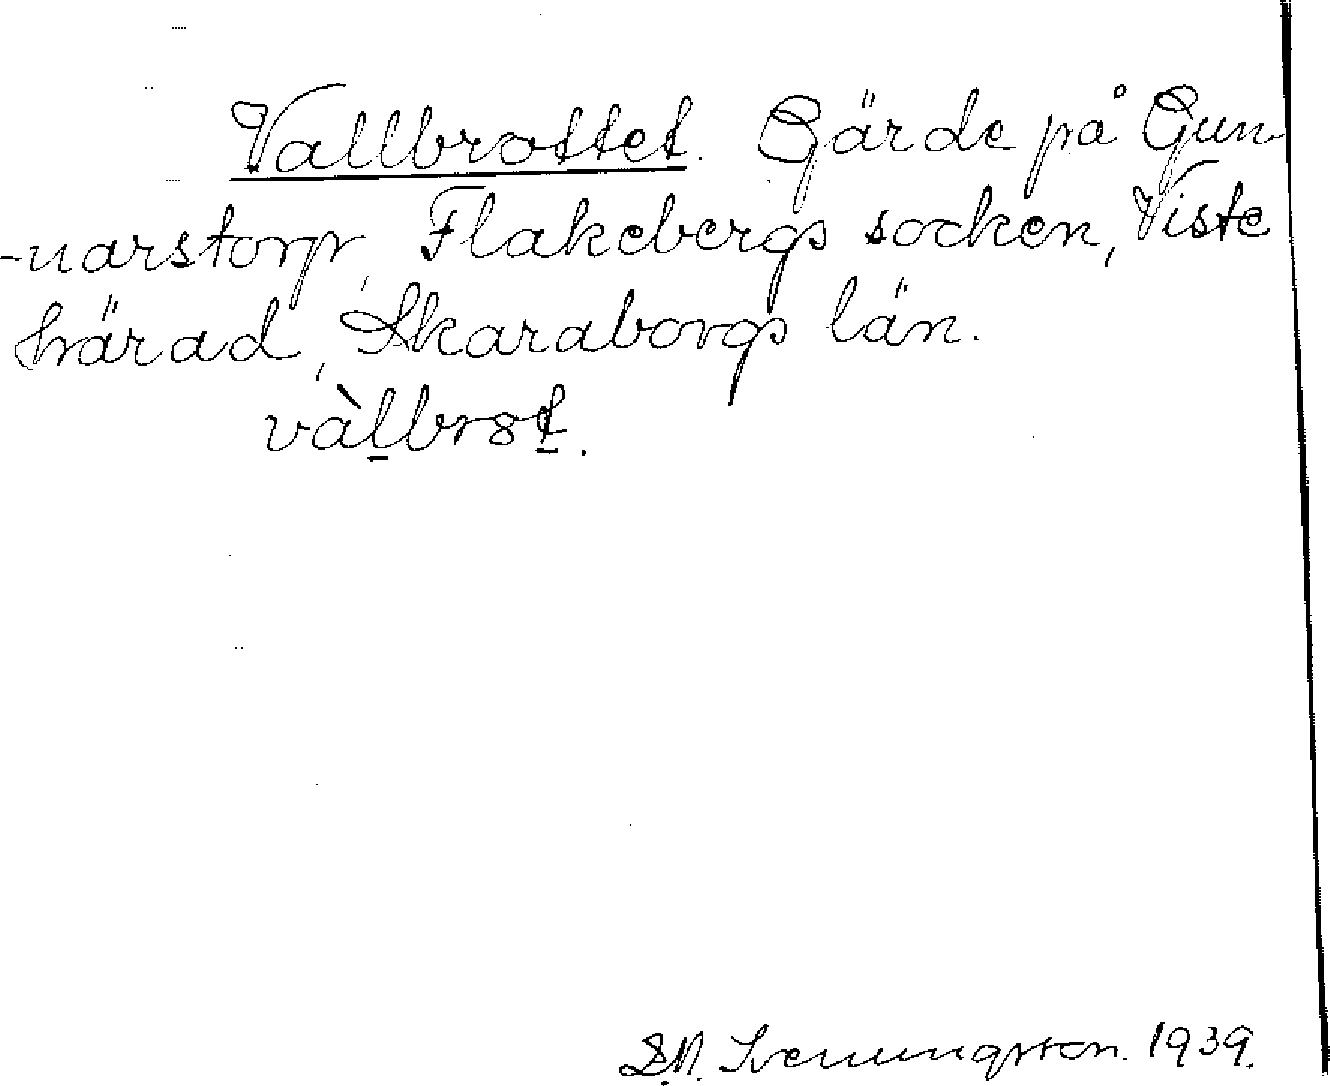 Vallbrottet. Gärde på Gun-
-narstorp, Flakebergs socken, Viste
härad, Skaraborgs län.
vàl̲brɞt̲.
S.N. Svenungsson. 1939.